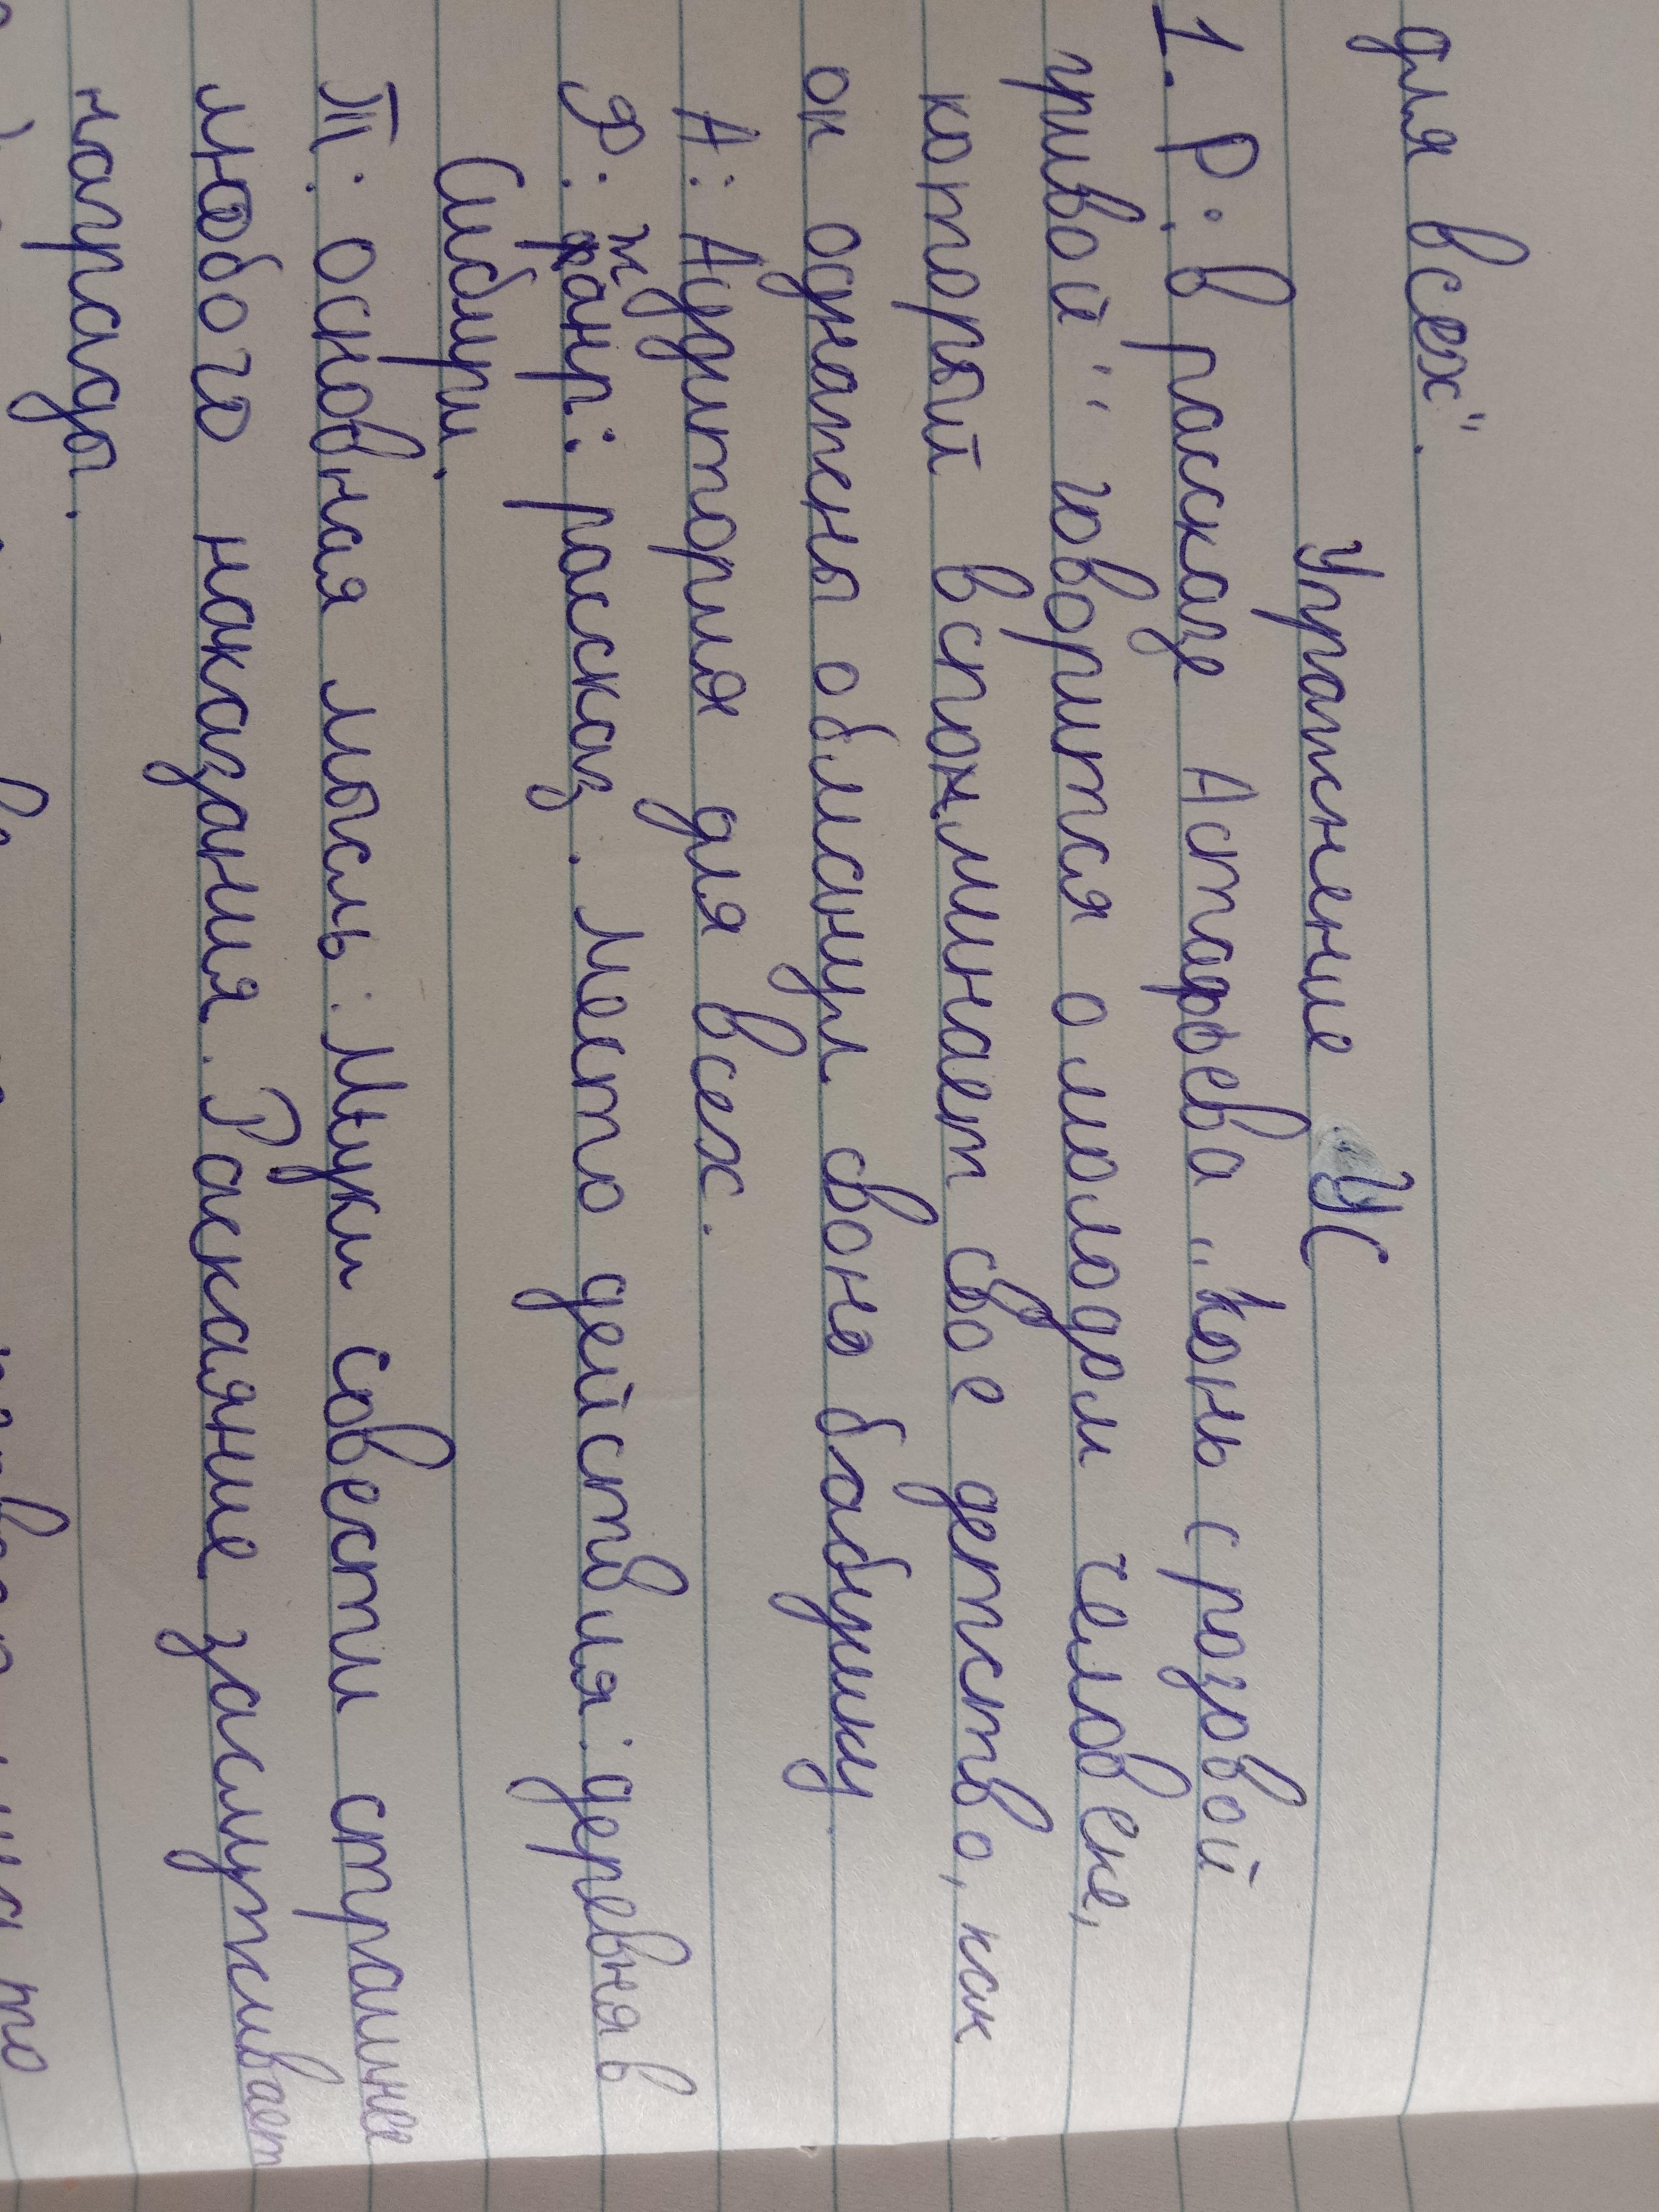 для всех".
Упражнение УС
1. Р: в расказе Астафьева „Конь с розовой
гривой" говорится о молодом человеке,
который вспоминает свое детство, как
он однажды обманул свою бабушку.
А: Аудитория для всех.
Ф: жанр: расказ. Место действия: деревня в
Сибири.
Т: основная мысль: Муки совести страшнее
любого наказания. Раскаяние заслуживает
награды.